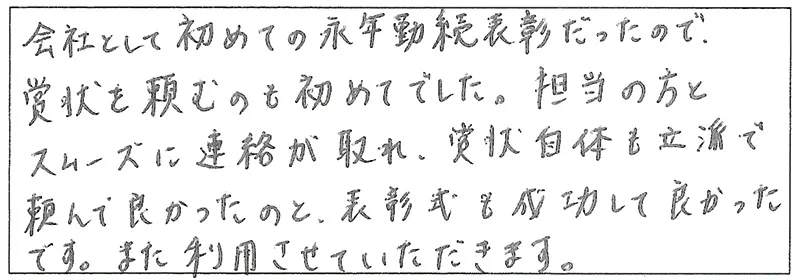 会社として初めての永年勤続表彰だったので、
賞状を頼むのも初めてでした。担当の方と
スムーズに連絡が取れ、賞状自体も立派で
頼んで良かったのと、表彰式も成功して良かった
です。また利用させていただきます。